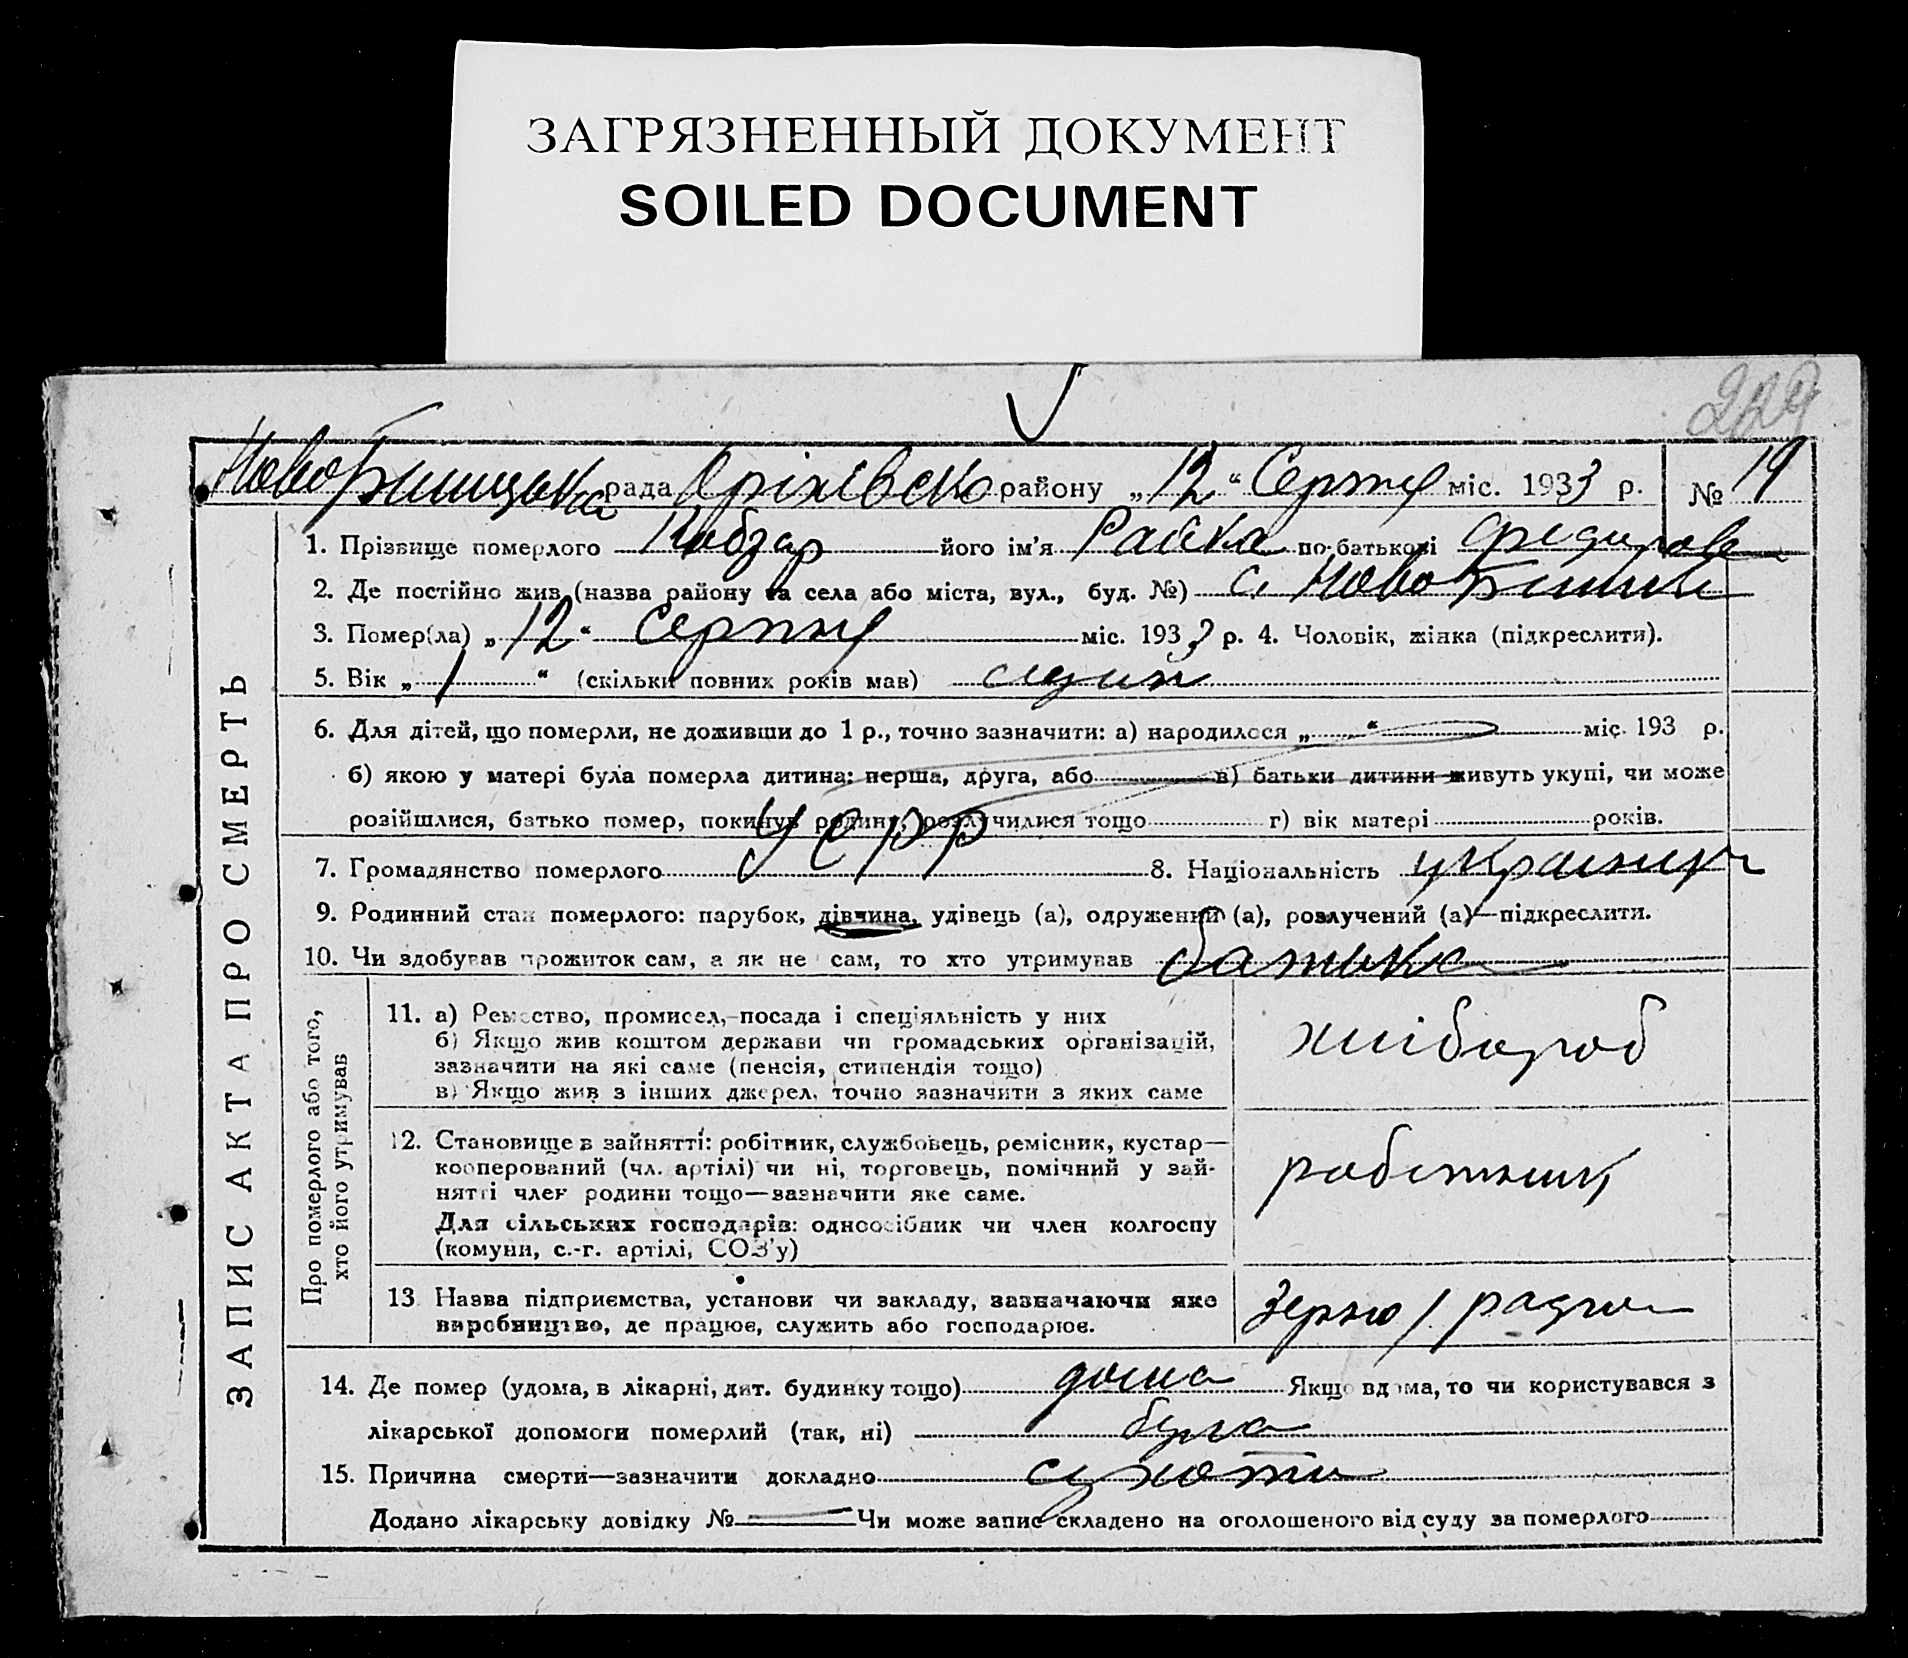 ЗАГРЯЗНЕННЫЙ ДОКУМЕНТ
SOILED DOCUMENT
229
рада Оріхівсько району „12“ Серпня міс. 1933 р. № 19
ЗАПИС АКТА ПРО СМЕРТЬ
1. Прізвище померлого Кобзар його ім'я Раїса по-батькові
2. Де постійно жив (назва району та села або міста, вул., буд. №) с.
3. Помер(ла) „12“ Серпня міс. 1933 р. 4. Чоловік, жінка (підкреслити).
5. Вік „1“ (скільки повних років мав) один
6. Для дітей, що померли, не доживши до 1 р., точно зазначити: а) народилося „ “ міс. 193 р.
б) якою у матері була померла дитина: перша, друга, або в) батьки дитини живуть укупі, чи може
розійшлися, батько помер, покинув родину, розлучилися тощо г) вік матері років.
7. Громадянство померлого УСРР 8. Національність українка
9. Родинний стан померлого: парубок, дівчина, удівець (а), одружений (а), розлучений (а)—підкреслити.
10. Чи здобував прожиток сам, а як не сам, то хто утримував батько
Про померлого або того,
хто його утримував
11. а) Ремество, промисел,-посада і спеціяльність у них
б) Якщо жив коштом держави чи громадських організацій,
зазначити на які саме (пенсія, стипендія тощо)
в) Якщо жив з інших джерел, точно зазначити з яких саме
хлібороб
12. Становище в зайнятті: робітник, службовець, ремісник, кустар—
кооперований (чл. артілі) чи ні, торговець, помічний у зай-
нятті член родини тощо—зазначити яке саме.
Для сільських господарів: одноосібник чи член колгоспу
(комуни, с.-г. артілі, СОЗ'у)
робітник
13 Назва підприємства, установи чи закладу, зазначаючи яке
виробництво, де працює, служить або господарює.
Зерно/
14. Де помер (удома, в лікарні, дит. будинку тощо) дома Якщо вдома, то чи користувався з
лікарської допомоги померлий (так, ні) була
15. Причина смерти—зазначити докладно сухоти
Додано лікарську довідку № — Чи може запис складено на оголошеного від суду за померлого